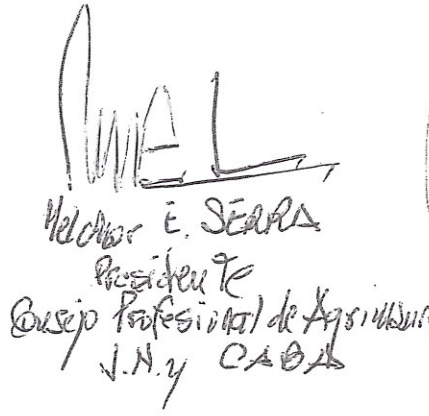 Melchor E. SERRA
Presidente
Consejo Profesional de Agrimensur
J.N. y CABA